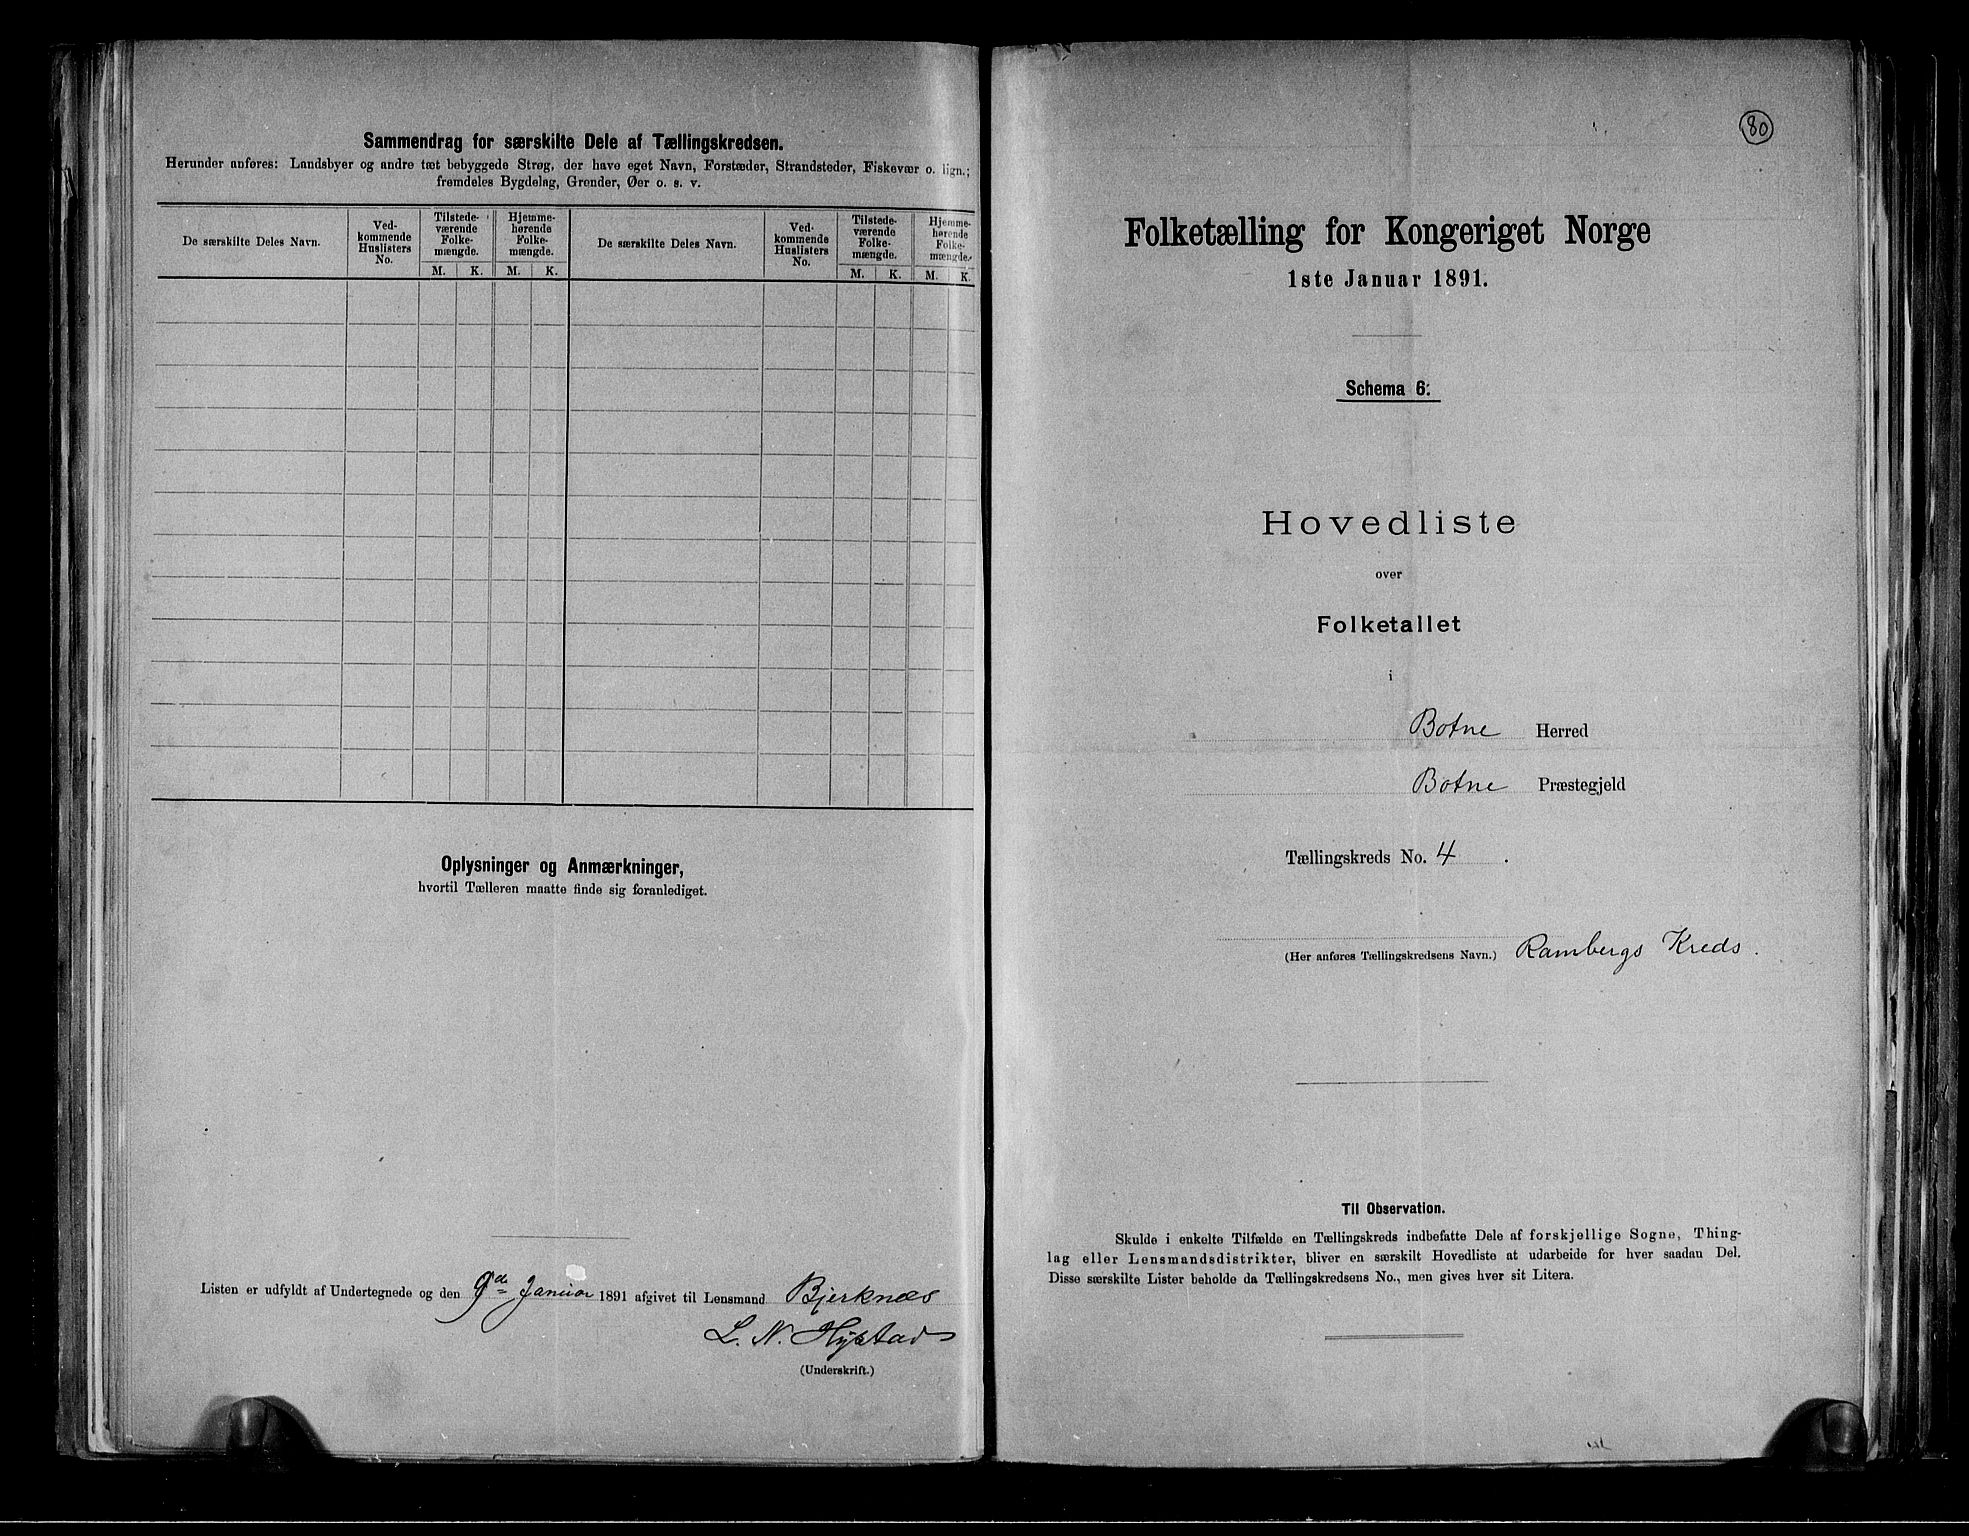 Sammendrag for særskilte Dele af Tællingskredsen.
Herunder anføres: Landsbyer og andre tæt bebyggede Strøg, der have eget Navn, Forstæder, Strandsteder, Fiskevær o. lign.;
fremdeles Bygdelag, Grender, Øer o. s. v.
De særskilte Deles Navn.
Ved-
kommende
Huslisters
No.
Tilstede-
værende
Folke-
mængde.
M. K.
Hjemme-
hørende
Folke-
mængde.
M. K.
De særskilte Deles Navn.
Ved-
kommende
Huslisters
No.
Tilstede-
værende
Folke-
mængde.
M. K.
Hjemme-
hørende
Folke-
mængde.
M. K.
Oplysninger og Anmærkninger,
hvortil Tælleren maatte finde sig foranlediget.
Listen er udfyldt af Undertegnede og den 9de Januar 1891 afgivet til Lensmand Bjerknæs
L. N. Hystad
(Underskrift.)
80
Folketælling for Kongeriget Norge
1ste Januar 1891.
Schema 6:
Hovedliste
over
Folketallet
i
Botne Herred
Botne Præstegjeld
Tællingskreds No. 4.
(Her anføres Tællingskredsens Navn.) Rambergs Kreds.
Til Observation.
Skulde i enkelte Tilfælde en Tællingskreds indbefatte Dele af forskjellige Sogne, Thing-
lag eller Lensmandsdistrikter, bliver en særskilt Hovedliste at udarbeide for hver saadan Del.
Disse særskilte Lister beholde da Tællingskredsens No., men gives hver sit Litera.